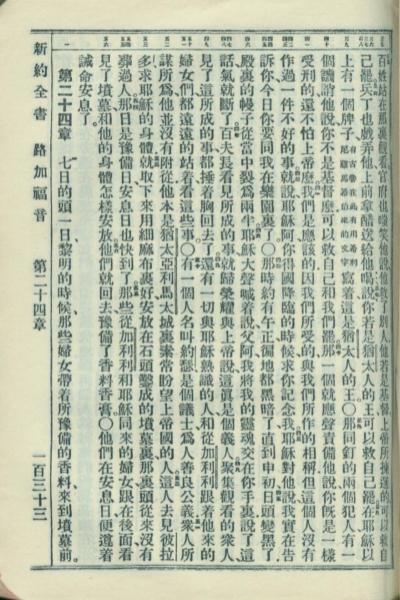 百姓站在那裏觀看官府也嗤笑他說他救了別人他若是基督上帝所揀選的可以救自
己罷兵丁也戲弄他上前拿醋送給他喝說你若是猶太人的王可以救自己罷在耶穌以
上有一個牌子有古卷在此有用希利尼羅馬希伯來的文字寫着這是猶太人的王〇那同釘的兩個犯人有一
個譏誚他說你不是基督麼可以救自己和我們罷那一個就應聲責備他說你旣是一樣
受刑的還不怕上帝麼我們是應該的因我們所受的與我們所作的相稱但這個人沒有
作過一件不好的事就說耶穌阿你得國降臨的時候求你記念我耶穌對他說我實在告
訴你今日你要同我在樂園裏了〇那時約有午正徧地都黑暗了直到申初日頭變黑了
殿裏的幔子從當中裂爲兩半耶穌大聲喊着說父阿我將我的靈魂交在你手裏說了這
話氣就斷了百夫長看見所成的事就歸榮耀與上帝說這眞是個義人聚集觀看的衆人
見了這所成的事都捶着胸回去了還有一切與耶穌熟識的人和從加利利跟着他來的
婦女們都遠遠的站着看這些事〇有一個人名叫約瑟是個議士爲人善良公義衆人所
謀所爲他並沒有附從他本是猶太亞利馬太城裏素常盼望上帝國的人這人去見彼拉
多求耶穌的身體就取下來用細麻布裹好安放在石頭鑿成的墳墓裏那裏頭從來沒有
葬過人那日是豫備日安息日也快到了那些從加利利和耶穌同來的婦女跟在後面看
見了墳墓和他的身體怎樣安放他們就回去豫備了香料香膏〇他們在安息日便遵着
誡命安息了。
第二十四章 七日的頭一日黎明的時候那些婦女帶着所豫備的香料來到墳墓前。
新約全書 路加福音 第二十四章 一百三十三